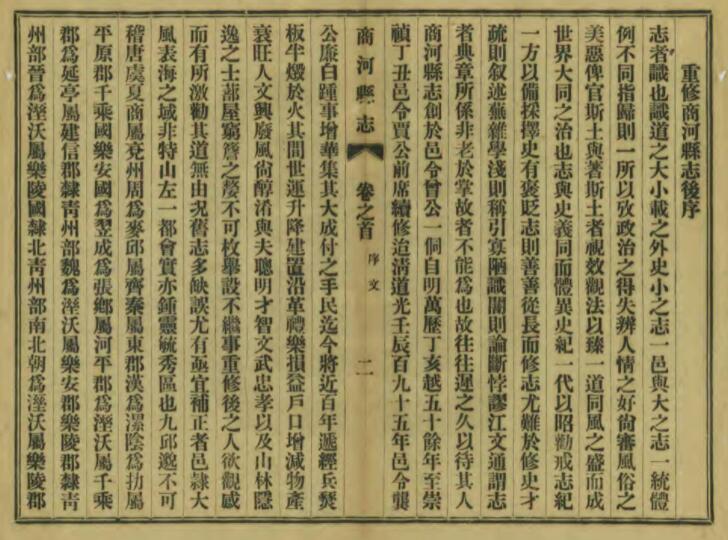 重修商河縣志後序
志者識也識道之大小載之外史小之志一邑與大之志一統體
例不同指歸則一所以攷政治之得失辨人情之好尙審風俗之
美惡俾官斯土與著斯土者視效觀法以臻一道同風之盛而成
世界大同之治也志與史義同而體異史紀一代以昭勸戒志紀
一方以備採擇史有褒貶志則善善從長而修志尤難於修史才
疏則叙述蕪雜學淺則稱引寡陋識闇則論斷悖謬江文通謂志
者典章所係非老於掌故者不能爲也故往往遲之久以待其人
商河縣志創於邑令曾公一侗自明萬歷丁亥越五十餘年至崇
禎丁丑邑令賈公前席續修迨淸道光壬辰百九十五年邑令龔
商河縣志
卷之首
序文
二
公廉白踵事增華集其大成付之手民迄今將近百年遞經兵燹
板半燬於火其間世運升降建置沿革禮樂損益戶口增減物產
衰旺人文興廢風尙醇淆與夫聰明才智文武忠孝以及山林隱
逸之士蔀屋窮簷之嫠不可枚舉設不繼事重修後之人欲觀感
而有所激勸其道無由况舊志多缺誤尤有亟宜補正者邑隸大
風表海之域非特山左一都會實亦鍾靈毓秀區也九邱邈不可
稽唐虞夏商屬兗州周爲麥邱屬齊秦屬東郡漢爲漯陰爲朸屬
平原郡千乘國樂安國爲翌成爲張鄉屬河平郡爲溼沃屬千乘
郡爲延亭屬建信郡隸靑州部魏爲溼沃屬樂安郡樂陵郡隸靑
州部晉爲溼沃屬樂陵國隸北靑州部南北朝爲溼沃屬樂陵郡